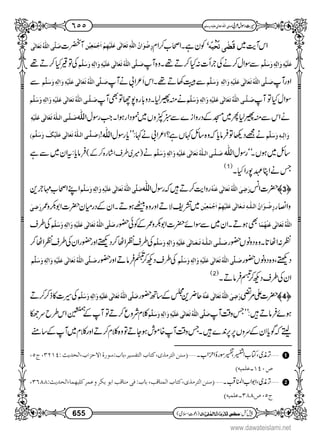 سیرتِ رسولِ عربی صلی اللہ تعالیٰ علیہ وسلم ۶۵۵
اس آیت میں قَضٰى نَحْبَهٗ ہے۔ صحابہ کرام رِضْوَانُ اللّٰہِ تَعَالٰی عَلَیْہِمْ اَجْمَعِیْن آنحضرت صَلَّی اللّٰہُ تَعَالٰی
عَلَیْہِ وَاٰلِہٖ وَسَلَّم سے سوال کرنے کی جرأت نہ کیا کرتے تھے۔ وہ آپ صَلَّی اللّٰہُ تَعَالٰی عَلَیْہِ وَاٰلِہٖ وَسَلَّم کی توقیر کیا کرتے تھے
اور آپ صَلَّی اللّٰہُ تَعَالٰی عَلَیْہِ وَاٰلِہٖ وَسَلَّم سے ہیبت کھاتے تھے۔ اس اعرابی نے آپ صَلَّی اللّٰہُ تَعَالٰی عَلَیْہِ وَاٰلِہٖ وَسَلَّم سے
سوال کیا تو آپ صَلَّی اللّٰہُ تَعَالٰی عَلَیْہِ وَاٰلِہٖ وَسَلَّم نے منہ پھیر لیا۔ دوبارہ پوچھا تو بھی آپ صَلَّی اللّٰہُ تَعَالٰی عَلَیْہِ وَاٰلِہٖ وَسَلَّم
نے اس سے منہ پھیر لیا۔ پھر میں مسجد کے دروازے سے سبز کپڑوں میں نمودار ہوا۔ جب رسول اللّٰہ صَلَّی اللّٰہُ تَعَالٰی عَلَیْہِ
وَاٰلِہٖ وَسَلَّم نے مجھے دیکھا تو فرمایا کہ وہ سائل کہاں ہے؟ اعرابی نے کہا: ’’یارسول اللّٰہ! (صَلَّی اللّٰہُ تَعَالٰی عَلَیْہِ وَاٰلِہٖ وَسَلَّم)
سائل میں ہوں۔‘‘ رسول اللّٰہ صَلَّی اللّٰہُ تَعَالٰی عَلَیْہِ وَاٰلِہٖ وَسَلَّم نے (میری طرف اشارہ کر کے) فرمایا: یہ ان میں سے ہے
جس نے اپنا عہد پورا کیا۔ (1)
﴿3﴾ حضرت انس رَضِیَ اللّٰہُ تَعَالٰی عَنْہُ روایت کرتے ہیں کہ رسول اللّٰہ صَلَّی اللّٰہُ تَعَالٰی عَلَیْہِ وَاٰلِہٖ وَسَلَّم اپنے اصحاب مہاجرین
وانصار رِضْوَانُ اللّٰہِ تَعَالٰی عَلَیْہِمْ اَجْمَعِیْن میں تشریف لاتے اور وہ بیٹھے ہوتے۔ ان کے درمیان حضرت ابوبکر وعمر رَضِیَ
اللّٰہُ تَعَالٰی عَنْہُمَا بھی ہوتے۔ ان میں سے سوائے حضرت ابوبکر وعمر کے کوئی حضور صَلَّی اللّٰہُ تَعَالٰی عَلَیْہِ وَاٰلِہٖ وَسَلَّم کی طرف
نظر نہ اٹھاتا۔ وہ دونوں حضور صَلَّی اللّٰہُ تَعَالٰی عَلَیْہِ وَاٰلِہٖ وَسَلَّم کی طرف نظر اٹھا کر دیکھتے اور حضور ان کی طرف نظر اٹھا کر
دیکھتے، وہ دونوں حضور صَلَّی اللّٰہُ تَعَالٰی عَلَیْہِ وَاٰلِہٖ وَسَلَّم کی طرف دیکھ کر تبسم فرماتے اور حضور صَلَّی اللّٰہُ تَعَالٰی عَلَیْہِ وَاٰلِہٖ وَسَلَّم
ان کی طرف دیکھ کر تبسم فرماتے۔ (2)
﴿4﴾ حضرت علی مرتضیٰ رَضِیَ اللّٰہُ تَعَالٰی عَنْہُ حاضرین مجلس کے ساتھ حضور صَلَّی اللّٰہُ تَعَالٰی عَلَیْہِ وَاٰلِہٖ وَسَلَّم کی سیرت کا ذکر کرتے
ہوئے فرماتے ہیں: ’’جس وقت آپ صَلَّی اللّٰہُ تَعَالٰی عَلَیْہِ وَاٰلِہٖ وَسَلَّم کلام شروع کرتے تو آپ کے ہمنشین اس طرح سر جھکا
لیتے کہ گویا ان کے سروں پر پرندے ہیں۔ جس وقت آپ خاموش ہو جاتے تو وہ کلام کرتے اور کلام میں آپ کے سامنے
1 …… ترمذی، کتاب التفسیر، تفسیر سورۂ احزاب۔ (سنن الترمذی، کتاب التفسیر، باب: سورة الاحزاب، الحدیث: ۳۲۱۴، ج۵،
ص۱۴۰۔ علمیہ)
2 …… ترمذی، ابواب المناقب۔ (سنن الترمذی، کتاب المناقب، باب: فی مناقب ابی بکر وعمر کلیهما، الحدیث: ۳۶۸۸،
ج۵، ص۳۸۸۔ علمیہ)
655
www.dawateislami.net